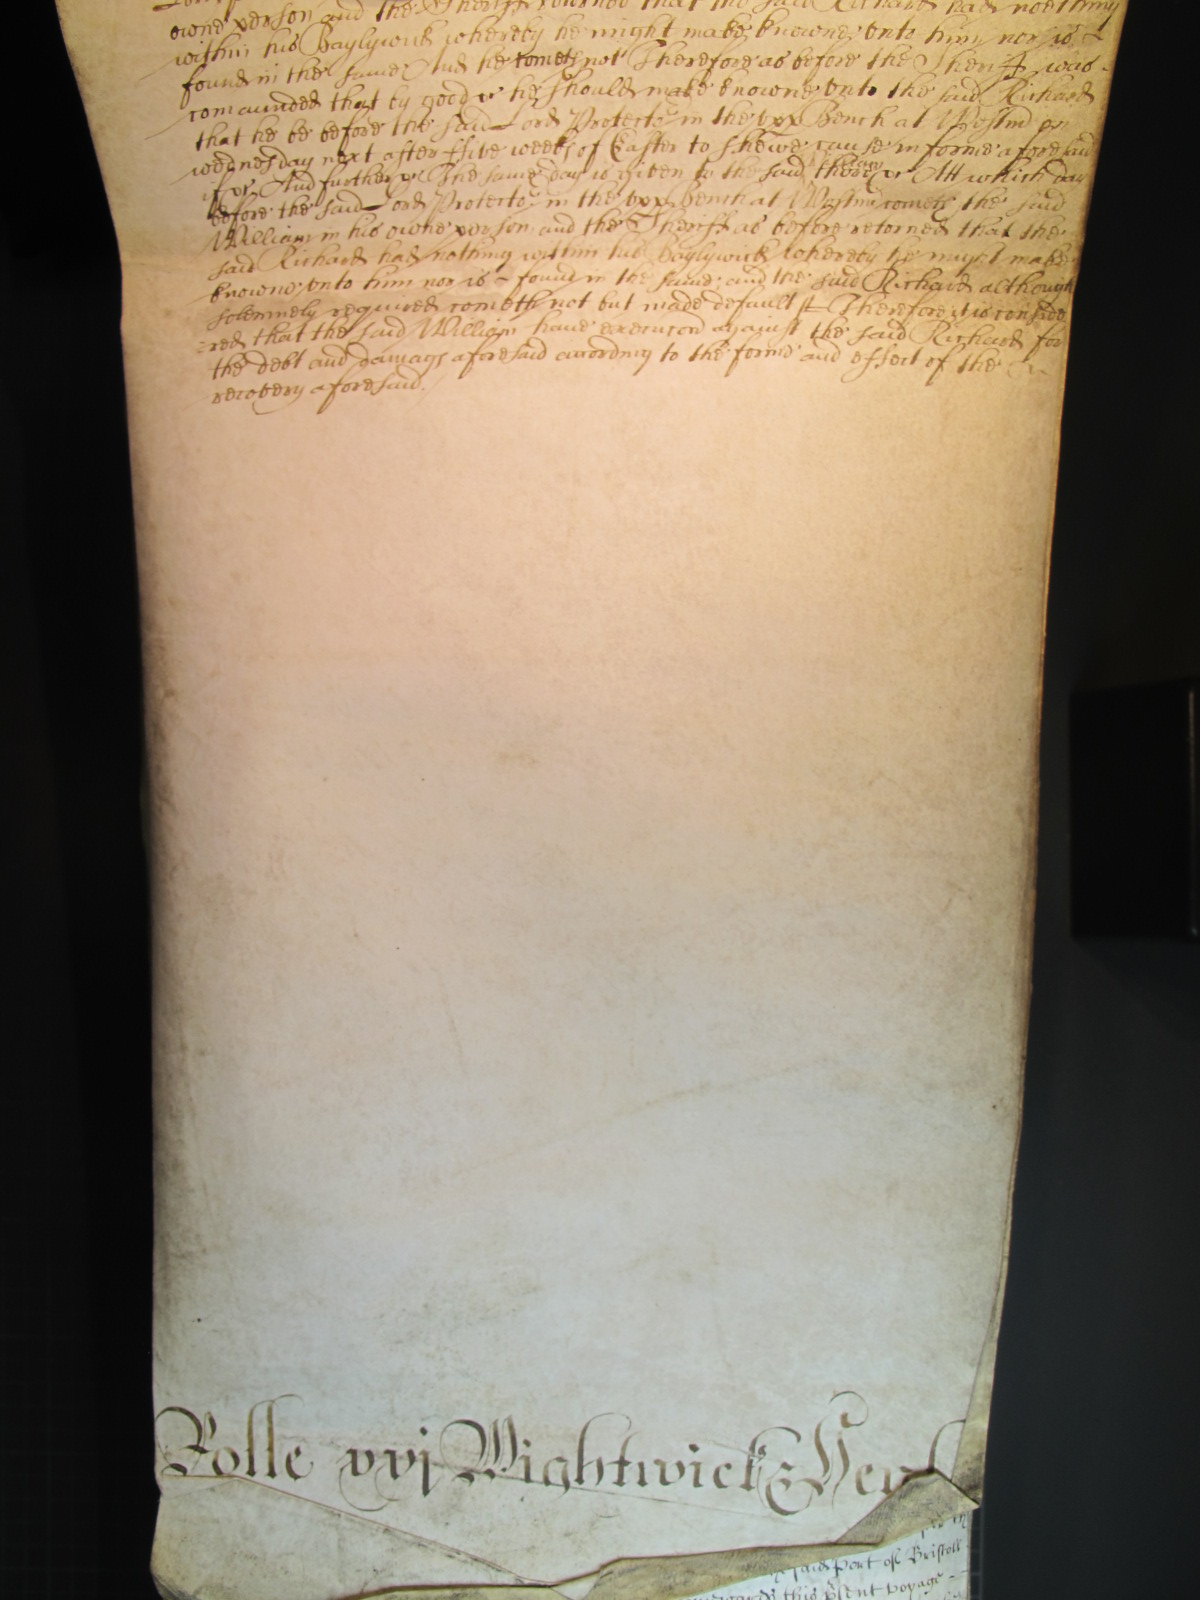 owne person and the Sheriff retorned that the said Richard had noething
within his Baylywick whereby he might make knowne vnto him nor is
found in the same And he cometh not Therefore as before the Sheriff was
comaunded that by good &c he should make knowne vnto the said Richard
that he be before the said Lord Protector in the vpp Bench at Westm on
wednesday next after ffive weeks of Easter to shewe cause in forme aforesaid
if &c And further &c The same day is given to the said William there &c Att which day
before the said Lord Protector in the vpp Bench at Westm cometh the said
William in his owne person and the Sheriff as before retorned that the
said Richard had nothing within his Baylywick whereby he might make
knowne vnto him nor is found in the same and the said Richard although
solemnely required cometh not but made default Therefore it is conside
red that the said William have execucon against the said Richard for
the debt and damags aforesaid according to the forme and effect of the
recovery aforesaid.
Rolle xvj Wightwick &
said Port of Bristoll
this p̃sent voyage